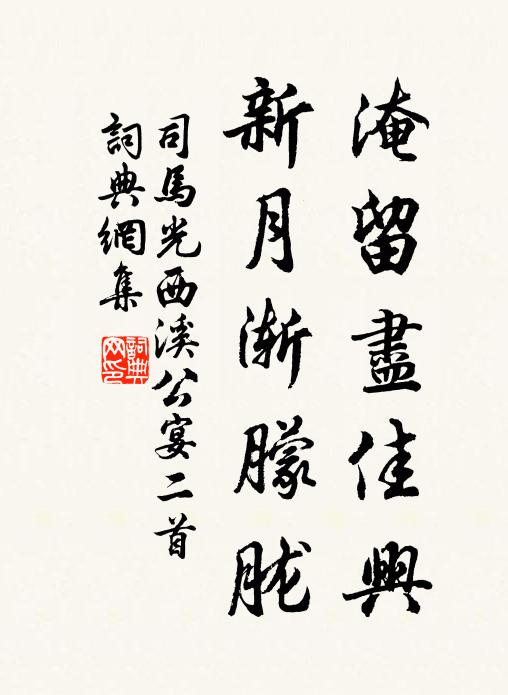 淹留盡佳興
新月漸朦朧
司馬光西溪公宴二首
詞典網集
詞典網印